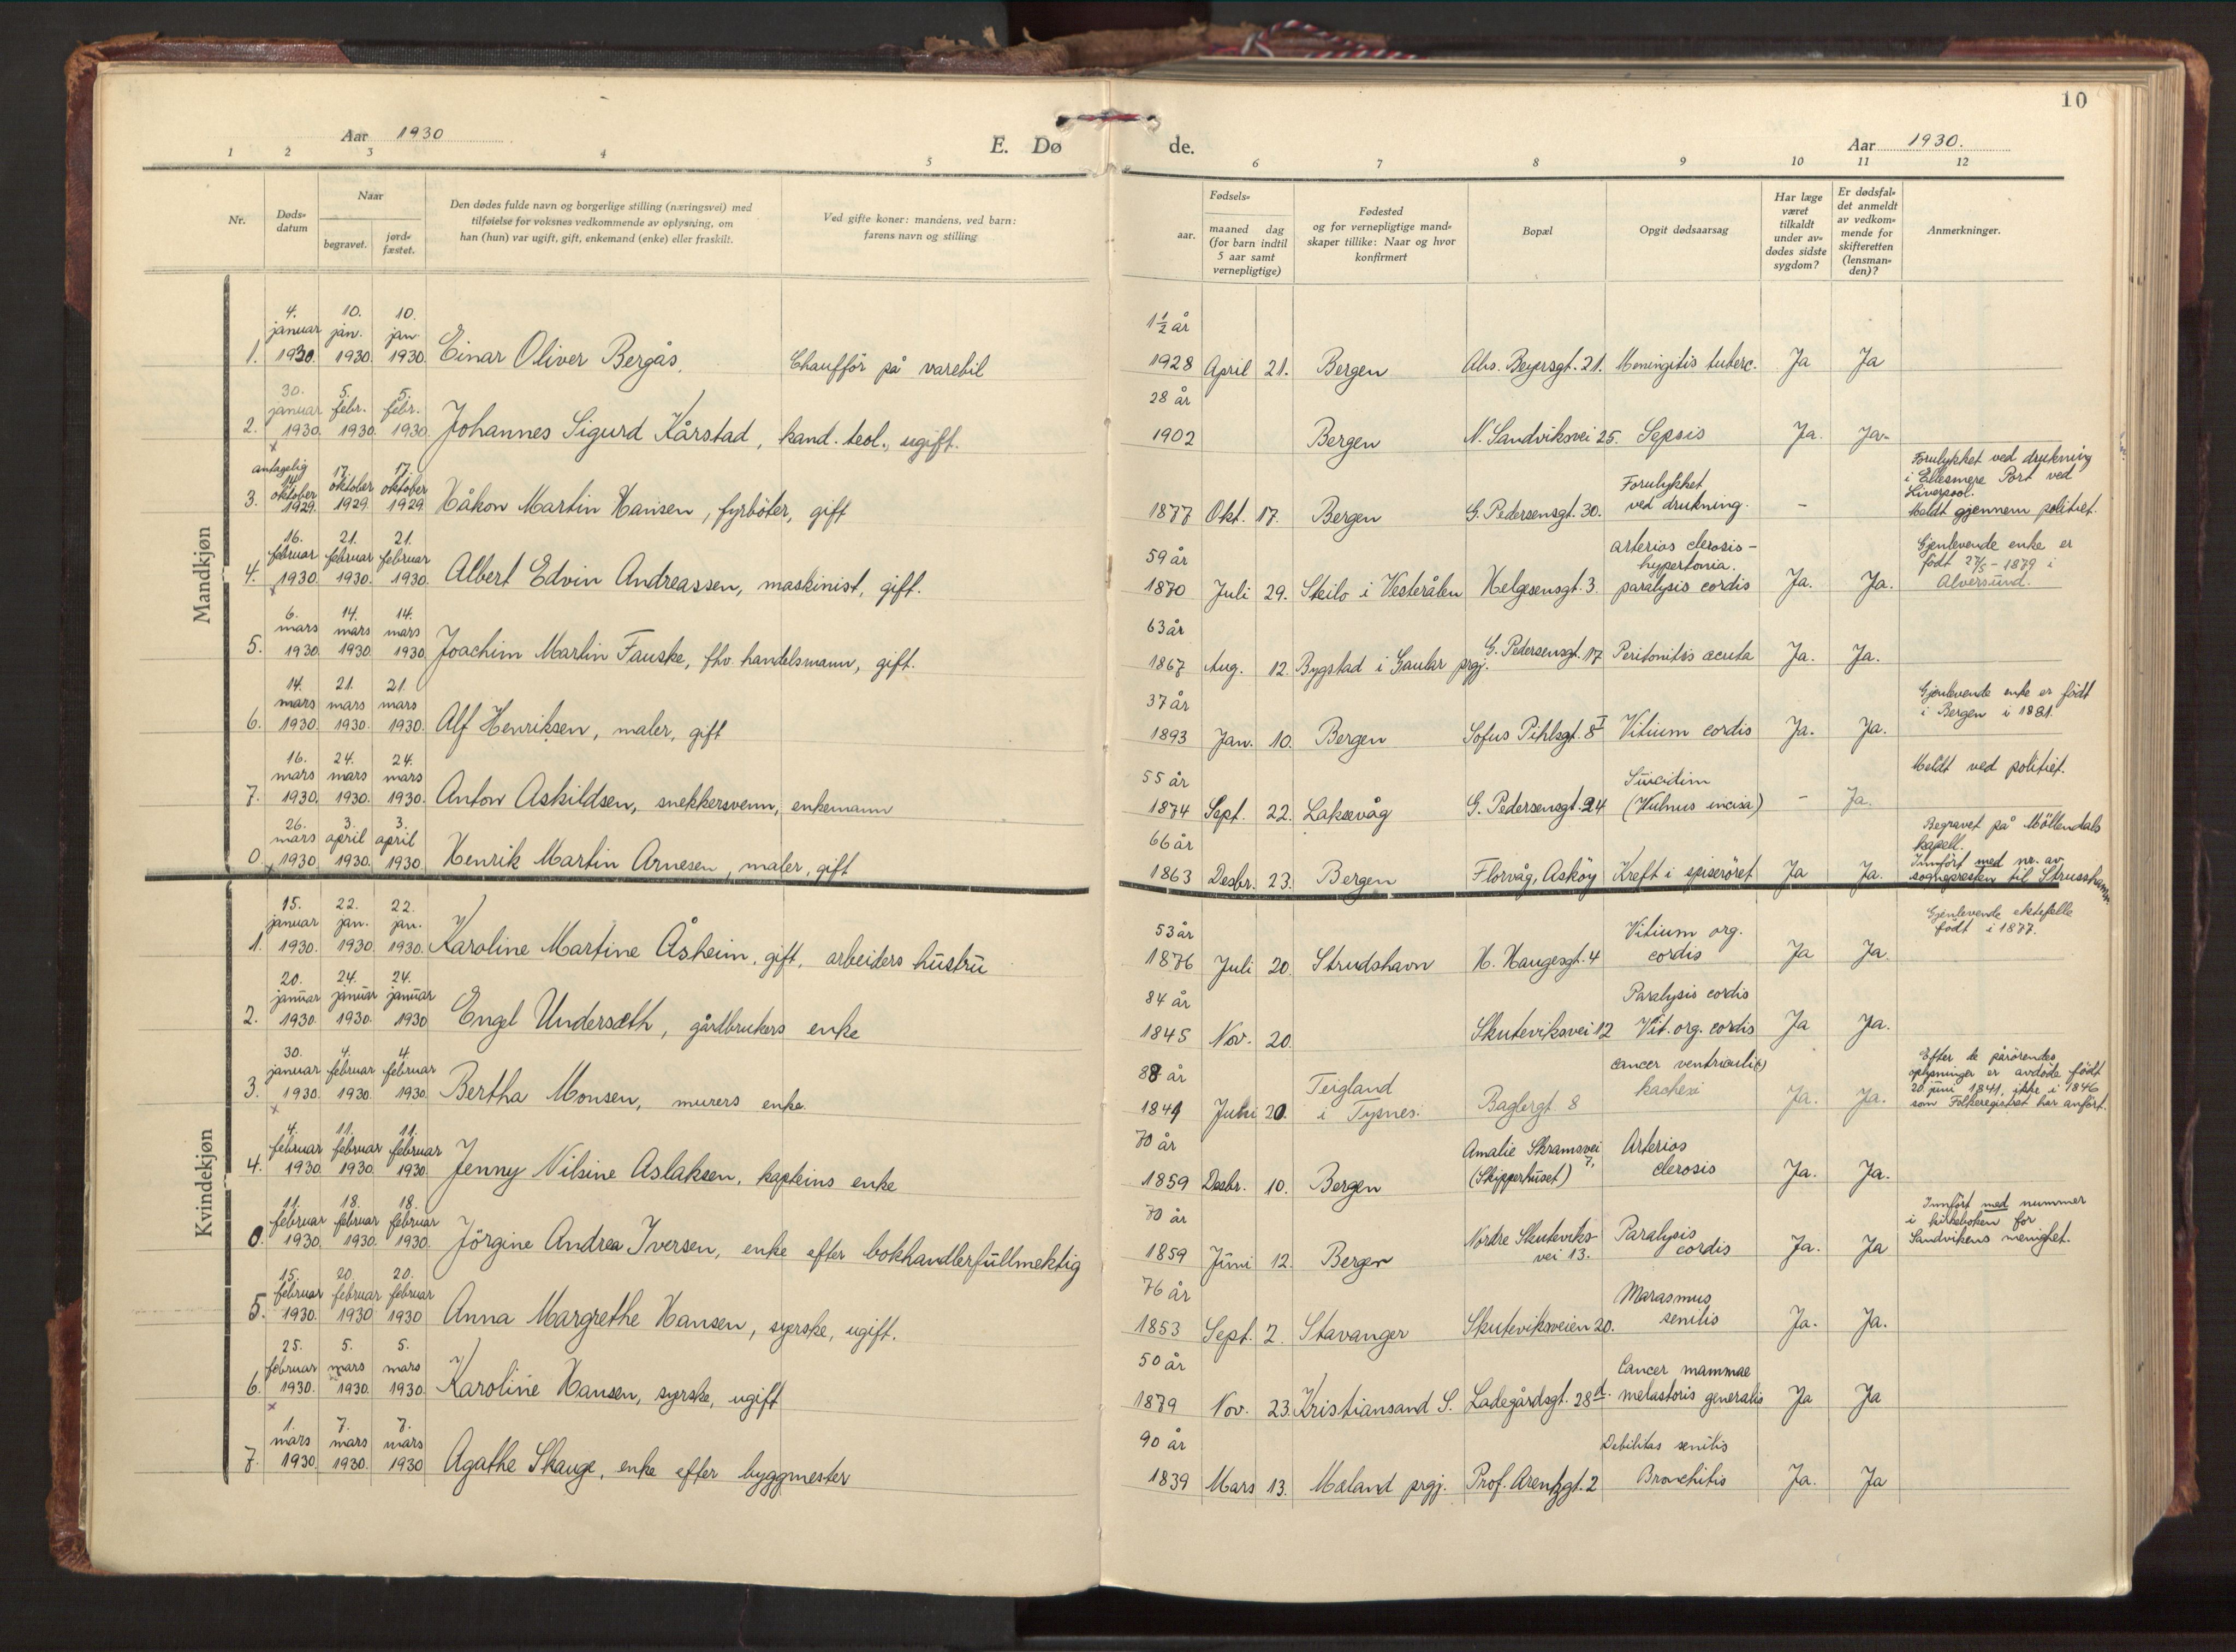 10
Aar 1930
E. Dø
de.
Aar 1930.
1 2 3 4 5 6 7 8 9 10 11 12
Nr.
Døds-
datum
Naar
begravet.
jord-
fæstet.
Den dødes fulde navn og borgerlige stilling (næringsvei) med
tilføielse for voksnes vedkommende av oplysning, om
han (hun) var ugift, gift, enkemand (enke) eller fraskilt.
Ved gifte koner: mandens, ved barn:
farens navn og stilling
Fødsels-
aar.
maaned dag
(for barn indtil
5 aar samt
vernepligtige)
Fødested
og for vernepligtige mand-
skaper tillike: Naar og hvor
konfirmert
Bopæl
Opgit dødsaarsag
Har læge
været
tilkaldt
under av-
dødes sidste
sygdom?
Er dødsfal-
det anmeldt
av vedkom-
mende for
skifteretten
(lensman-
den)?
Anmerkninger.
Mandkjøn
4. 10. 10.
januar jan. jan.
1½ år
1. 1930. 1930. 1930. Einar Oliver Bergås. Chaufför på varebil 1928 April 21. Bergen Abs. Beyersgt. 21. Meningitis tuberc. Ja Ja
30. 5. 5.
januar febr. febr.
28 år
2. 1930. 1930. 1930. Johannes Sigurd Kårstad, kand. teol., ugift. 1902 Bergen N. Sandviksvei 25. Sepsis Ja. Ja.
antagelig
14. 17. 17.
oktober oktober oktober
Forulykket
Forulykket ved drukning
i Ellesmere Port ved
Liverpool.
3. 1929. 1929. 1929 Håkon Martin Hansen, fyrböter, gift 1877 Okt. 17. Bergen G. Pedersensgt. 30. ved drukning. - Meldt gjennem politiet.
16. 21. 21.
februar februar februar
59 år
arterios clerosis -
hypertonia.
Gjenlevende enke er
født 27/5 - 1879 i
Alversund.
4. 1930. 1930. 1930. Albert Edvin Andreassen, maskinist, gift. 1870 Juli 29. Steilo i Vesterålen Helgesensgt. 3. paralysis cordis Ja. Ja.
6. 14. 14.
mars mars mars
63 år
5. 1930. 1930. 1930. Joachim Martin Fauske, fhv. handelsmann, gift. 1867 Aug. 12. Bygstad i Gaular prgj. G. Pedersensgt. 17 Peritonitis acuta Ja. Ja.
14. 21. 21.
mars mars mars
37 år
Gjenlevende enke er født
i Bergen i 1881.
6. 1930. 1930. 1930. Alf Henriksen, maler, gift 1893 Jan. 10. Bergen Sofus Pihlsgt. 8 I Vitium cordis Ja. Ja.
16. 24. 24.
mars mars mars
55 år
Suicidium
Meldt ved politiet.
7. 1930. 1930. 1930. Anton Askildsen, snekkersvenn, enkemann 1874 Sept. 22. Laksevåg G. Pedersensgt. 24 (Vulnus incisa) - Ja.
26. 3. 3.
mars april april
66 år
Begravet på Möllendals
kapell.
Innført med nr. av
sognepresten til Strusshamn.
0 1930. 1930. 1930. Henrik Martin Arnesen, maler, gift 1863 Desbr. 23. Bergen Florvåg, Asköy Kreft i spiseröret Ja Ja.
Kvindekjøn
15. 22. 22.
januar jan. jan.
53 år
Vitium org.
Gjenlevende ektefelle
født i 1877.
1. 1930. 1930. 1930. Karoline Martine Åsheim, gift, arbeiders hustru 1876 Juli 20. Strudshavn H. Haugesgt. 4 cordis Ja Ja.
20. 24. 24.
januar januar januar
84 år
Paralysis cordis
2. 1930. 1930. 1930 Engel Undersæth, gårdbrukers enke 1845 Nov. 20. Skuteviksvei 12 Vit. org. cordis Ja Ja.
30. 4. 4.
januar februar februar
88 år
Teigland
cancer ventriculi
Efter de pårörendes
oplysninger er avdöde født
20. juni 1841, ikke i 1846
som Folkeregistret har anført.
3. 1930. 1930. 1930. Bertha Monsen, murers enke. 1841 Juni 20. i Tysnes. Baglergt. 8 kachexi Ja. Ja.
4. 11. 11.
februar februar februar
70 år
Amalie Skramsvei
7,
Arterios
4. 1930. 1930. 1930. Jenny Nilsine Aslaksen, kapteins enke 1859 Desbr. 10. Bergen (Skipperhuset) clerosis Ja. Ja.
11. 18. 18.
februar februar februar
70 år
Nordre Skuteviks-
vei 13.
Paralysis
Innført med nummer
i kirkeboken for
Sandvikens menighet.
0. 1930. 1930. 1930. Jörgine Andrea Iversen, enke efter bokhandlerfullmektig 1859 Juni 12. Bergen cordis Ja. Ja
15. 20. 20.
februar februar februar
76 år
Marasmus
5. 1930. 1930 1930 Anna Margrethe Hansen, syerske, ugift. 1853 Sept. 2. Stavanger Skuteviksveien 20. senilis Ja. Ja.
25. 5. 5.
februar mars mars
50 år
Cancer mammae
6. 1930. 1930. 1930. Karoline Hansen, syerske, ugift 1879 Nov. 23. Kristiansand S. Ladegårdsgt. 28 metastoris generalis Ja Ja
1. 7. 7.
mars mars mars
90 år
Debilitas senilis
7. 1930. 1930. 1930 Agathe Skauge, enke efter byggmester 1839 Mars 13. Mæland prgj. Prof. Arentzgt. 2 Bronchitis Ja. Ja